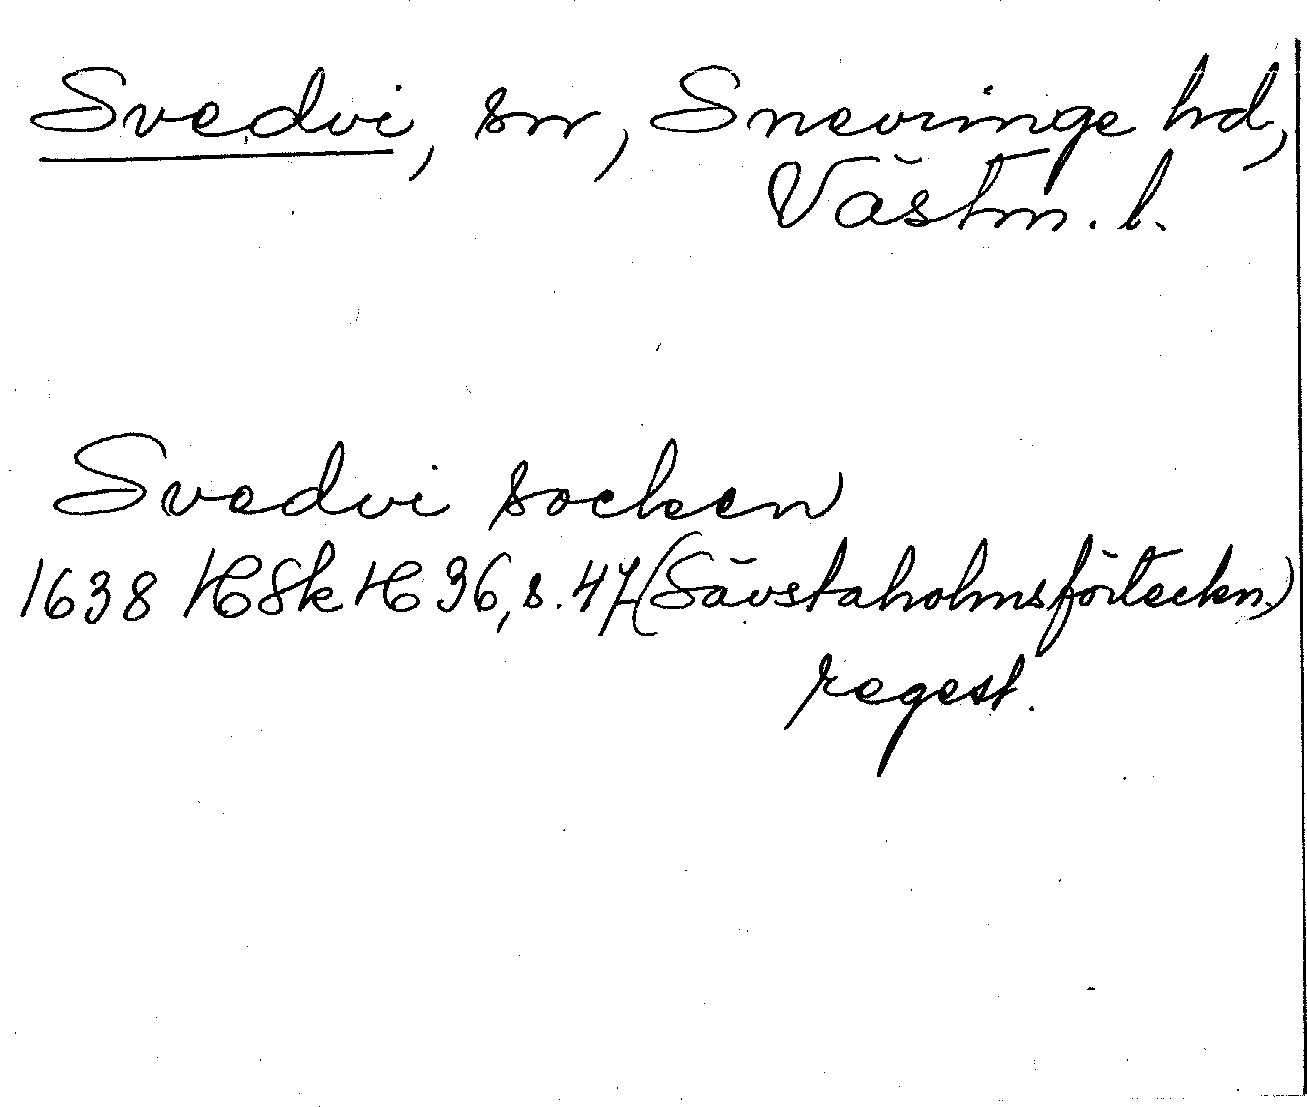 Svedvi, sn, Snevringe hd,
Västm. l.
Svedvi socken
1638 HSkH 36, s. 47 (Sävstaholmsförteckn.)
regest.